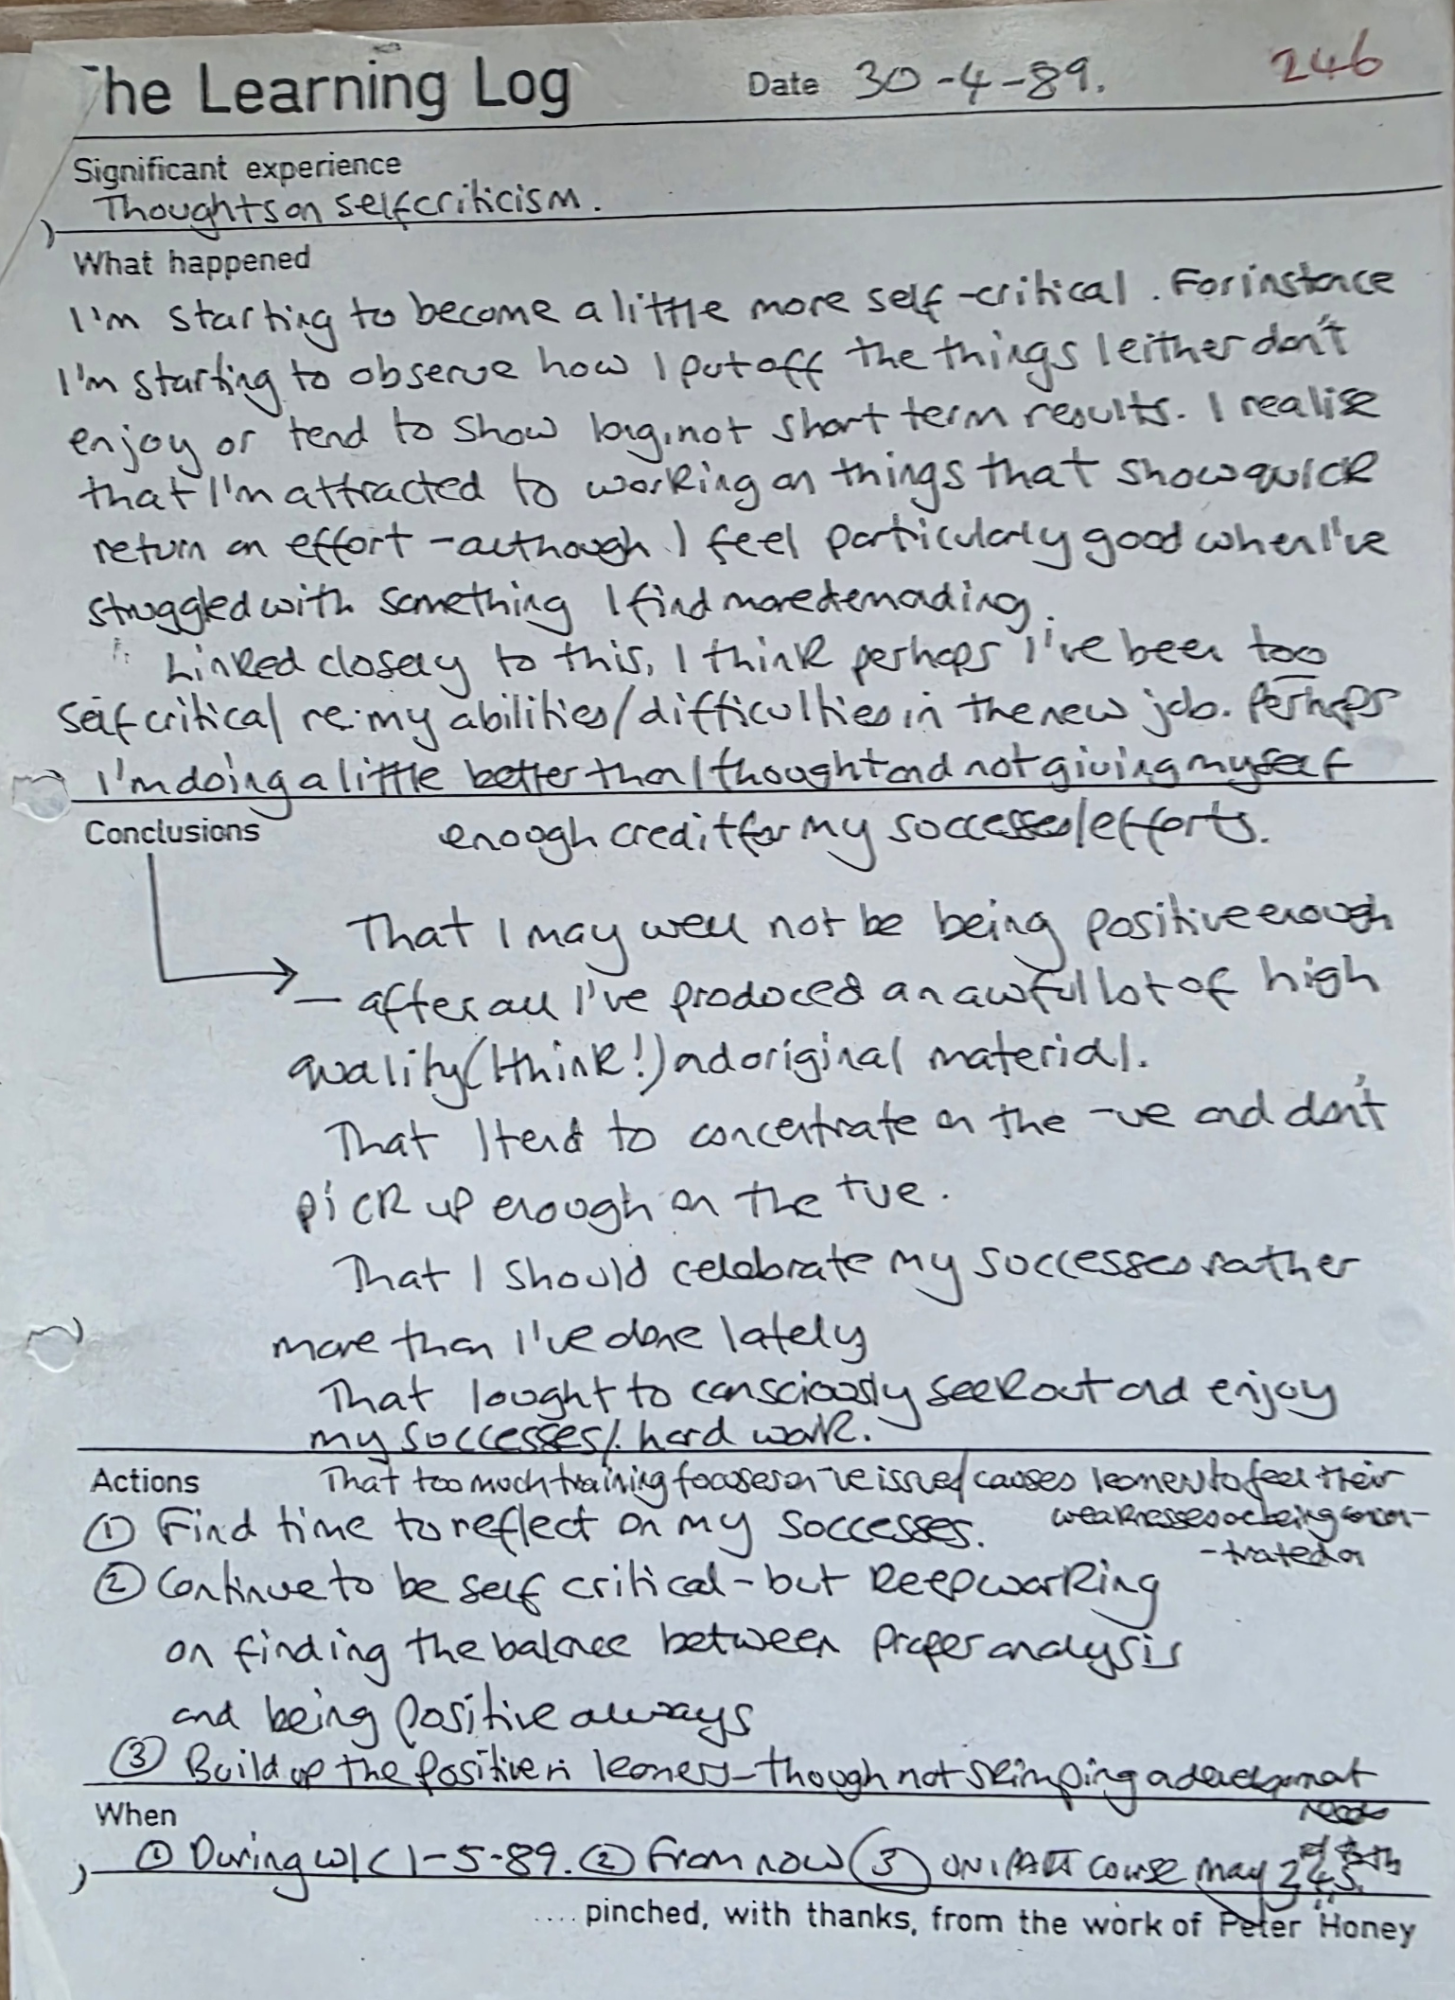 The Learning Log Date 30-4-89. 246
Significant experience
Thoughts on selfcriticism.
What happened
I'm starting to become a little more self-critical. For instance
I'm starting to observe how I put off the things I either don't
enjoy or tend to show long, not short term results. I realise
that I'm attracted to working on things that show quick
return on effort - although I feel particularly good when I've
struggled with something I find more demading.
Linked closely to this, I think perhaps I've been too
self critical re: my abilities/difficulties in the new job. Perhaps
I'm doing a little better than I thought and not giving myself
enough credit for my successes/efforts.
Conclusions
That I may well not be being positive enough
- after all I've produced an awful lot of high
quality (I think!) and original material.
That I tend to concentrate on the -ve and don't
pick up enough on the +ve.
That I should celebrate my successes rather
more than I've done lately
That I ought to consciously seek out and enjoy
my successes/. hard work.
That too much training focuses on -ve issues/causes learners to feel their
weaknesses are being concen-
-trated on
Actions
① Find time to reflect on my successes.
② Continue to be self critical - but keep working
on finding the balance between proper analysis
and being positive always
③ Build up the positive in learners - though not skimping on development
needs
When
① During w/c 1-5-89. ② From now ③ ON course May
.... pinched, with thanks, from the work of Peter Honey